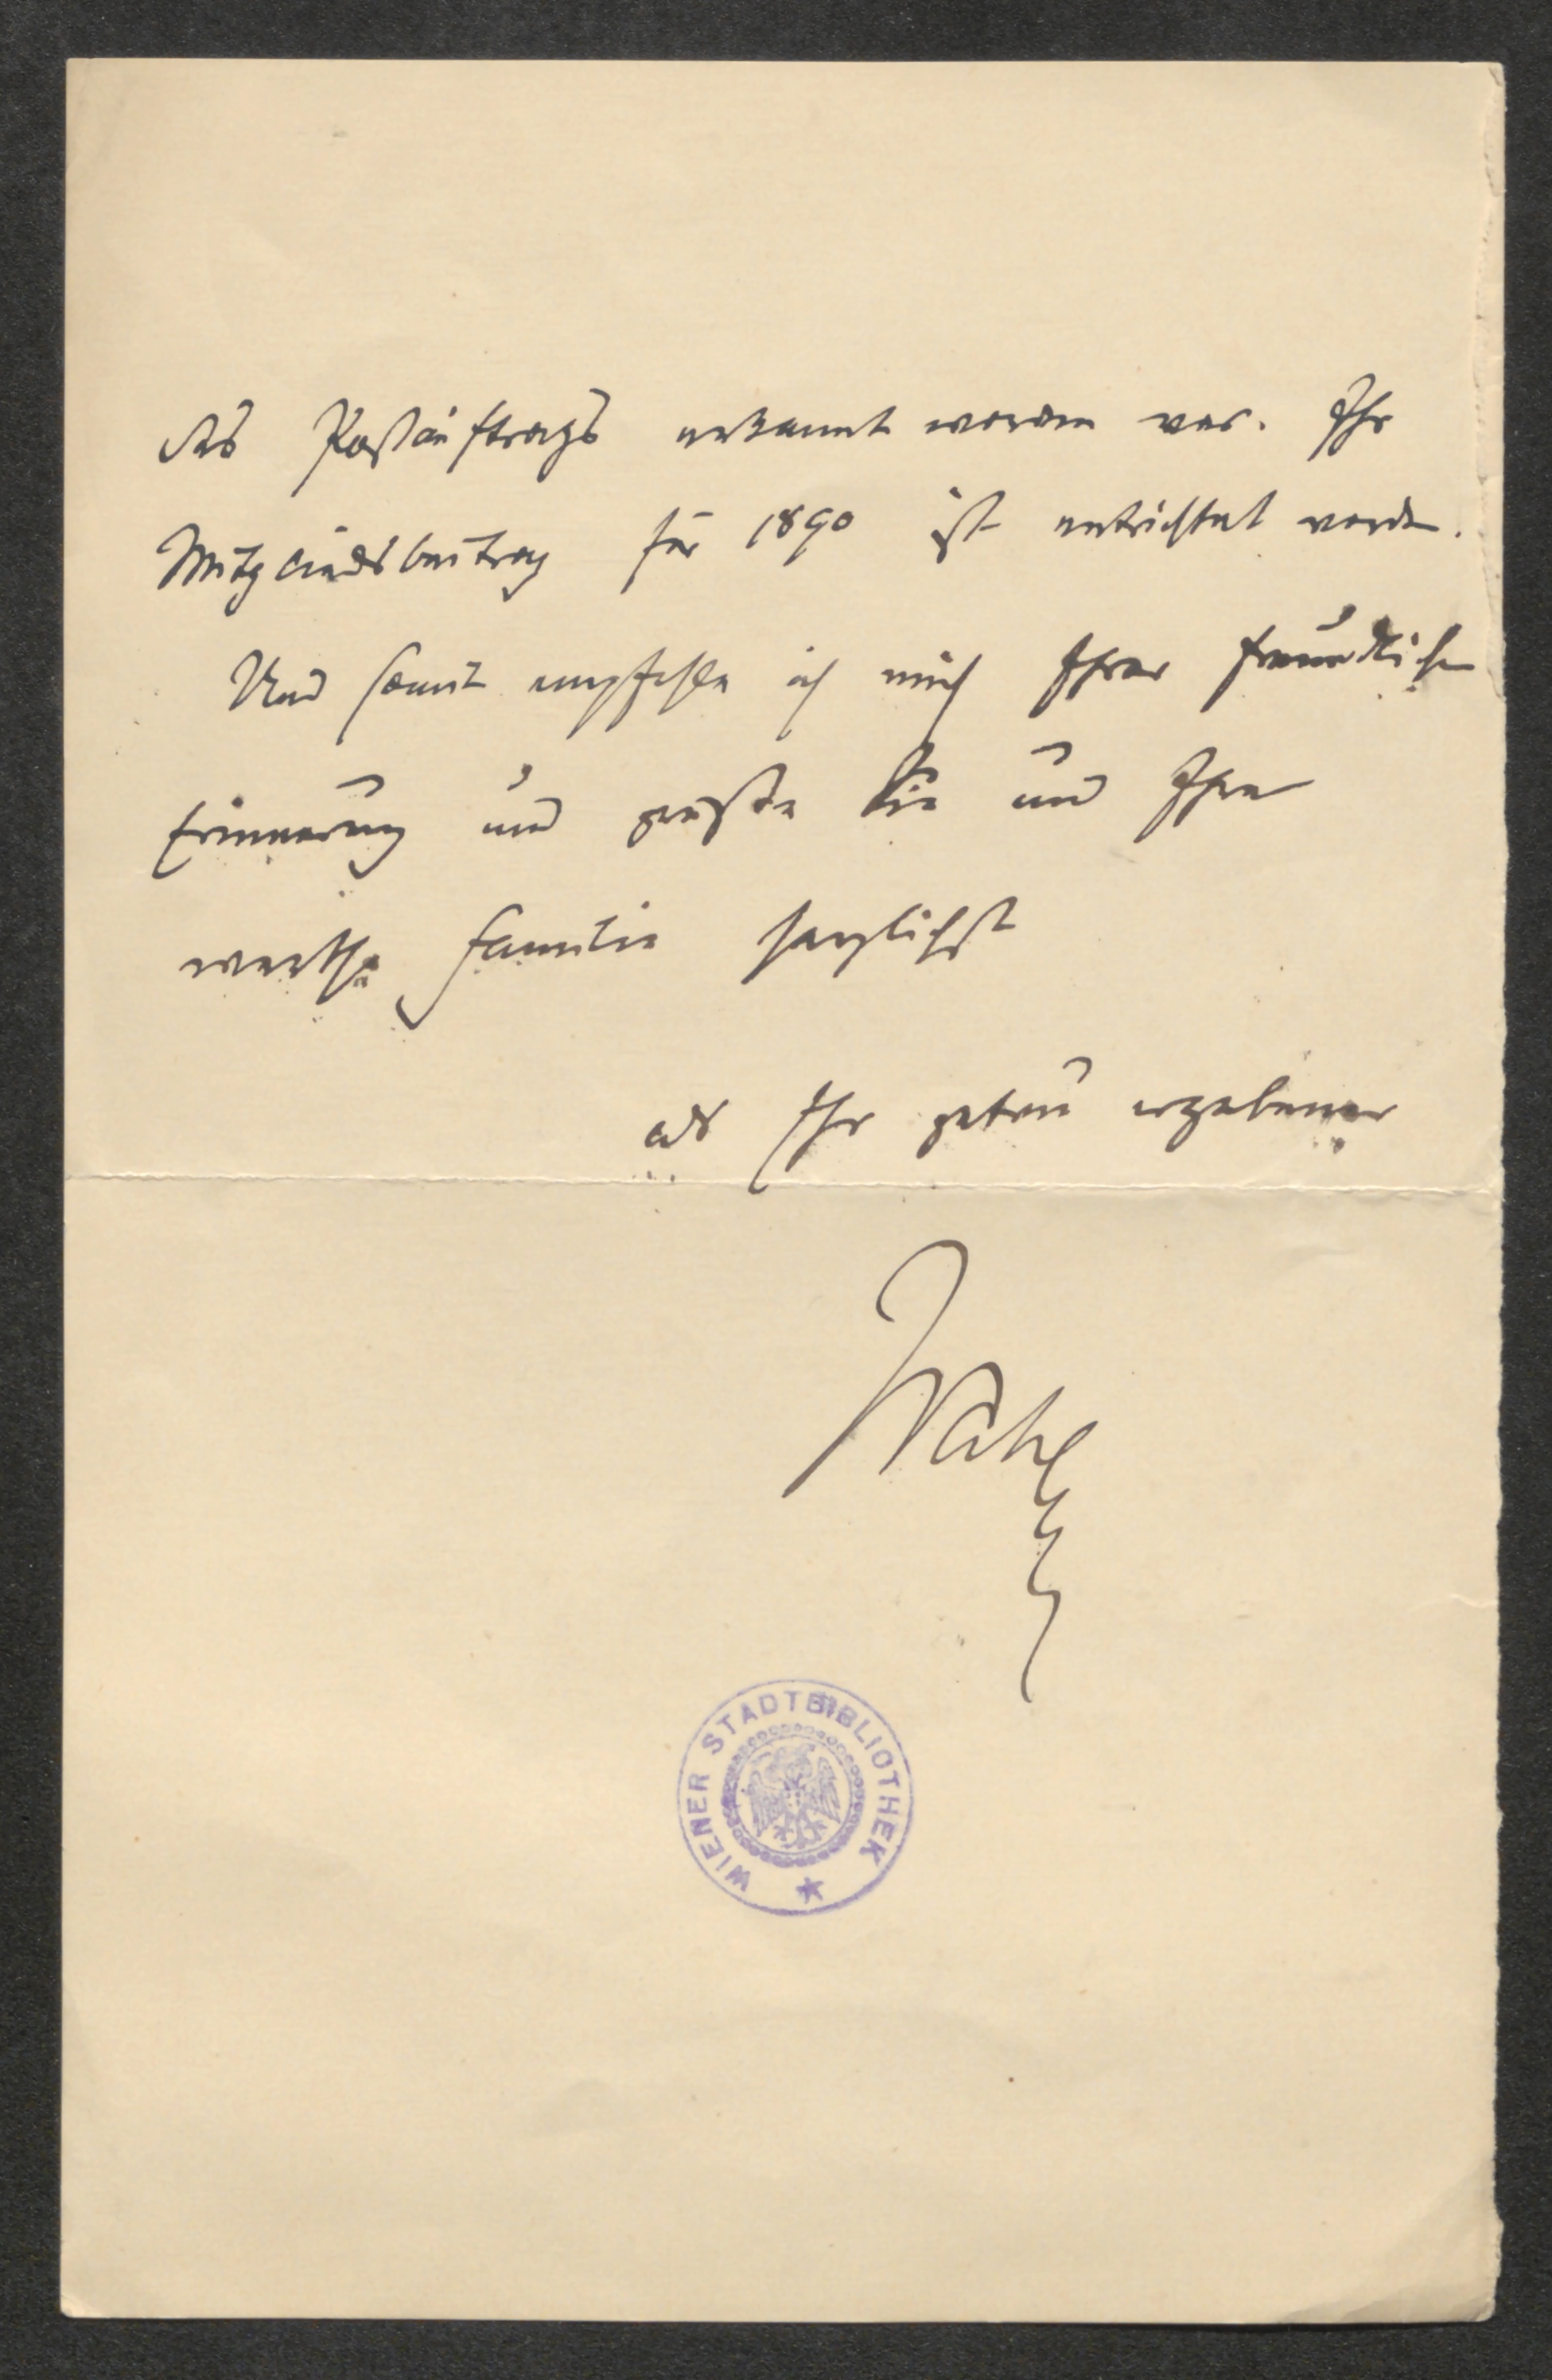 des Postauftrags erkannt worden war. Ihr
Mitgliedsbeitrag für 1890 ist entrichtet worden.
Und somit empfehle ich mich Ihrer freundlichen
Erinnerung und grüße Sie und Ihre
werthe Familie herzlichst
als Ihr getreu ergebener
WIENER STADTBIBLIOTHEK